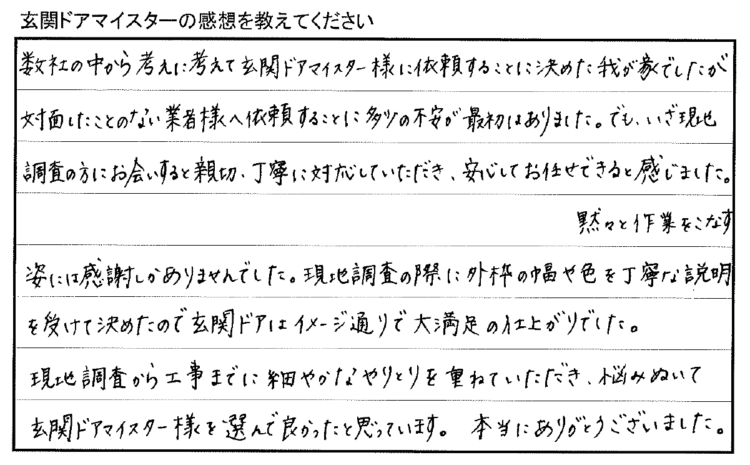 玄関ドアマイスターの感想を教えてください
数社の中から考えに考えて玄関ドアマイスター様に依頼することに決めた我が家でしたが
対面したことのない業者様へ依頼することに多少の不安が最初はありました。でも、いざ現地
調査の方にお会いすると親切、丁寧に対応していただき、安心してお任せできると感じました。
黙々と作業をこなす
姿には感謝しかありませんでした。現地調査の際に外枠の幅や色を丁寧な説明
を受けて決めたので玄関ドアはイメージ通りで大満足の仕上がりでした。
現地調査から工事までに細やかなやりとりを重ねていただき、悩みぬいて
玄関ドアマイスター様を選んで良かったと思っています。 本当にありがとうございました。